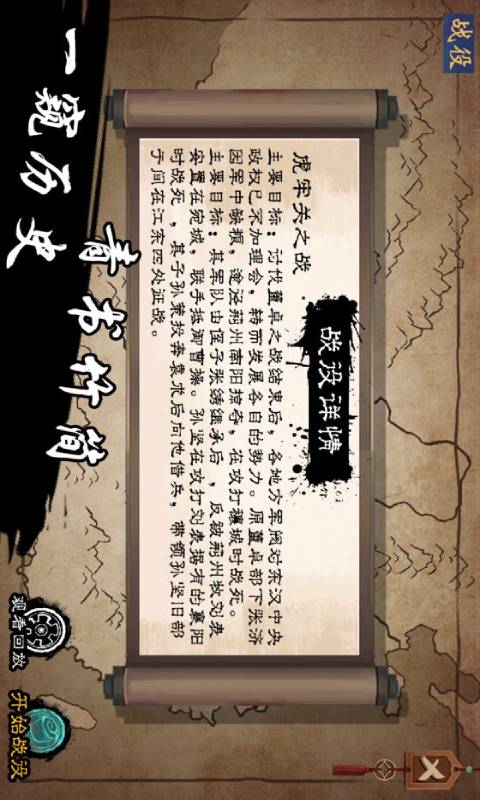 战役
战役详情
虎牢关之战
主要目标：讨伐董卓之战结束后，各地方军阀对东汉中央
政权已不加理会，转而发展各自的势力。原董卓部下张济
因军中缺粮，途经荆州南阳掠夺，在攻打穰城时战死。
主要目标：其军队由侄子张绣继承后，反被荆州牧刘表
安置在宛城，联手抵御曹操。孙坚在攻打刘表据有的襄阳
时战死，其子孙策投奔袁术后向他借兵，带领孙坚旧部
于间在江东四处征战。
青书竹简
一窥历史
观看回放
开始战役